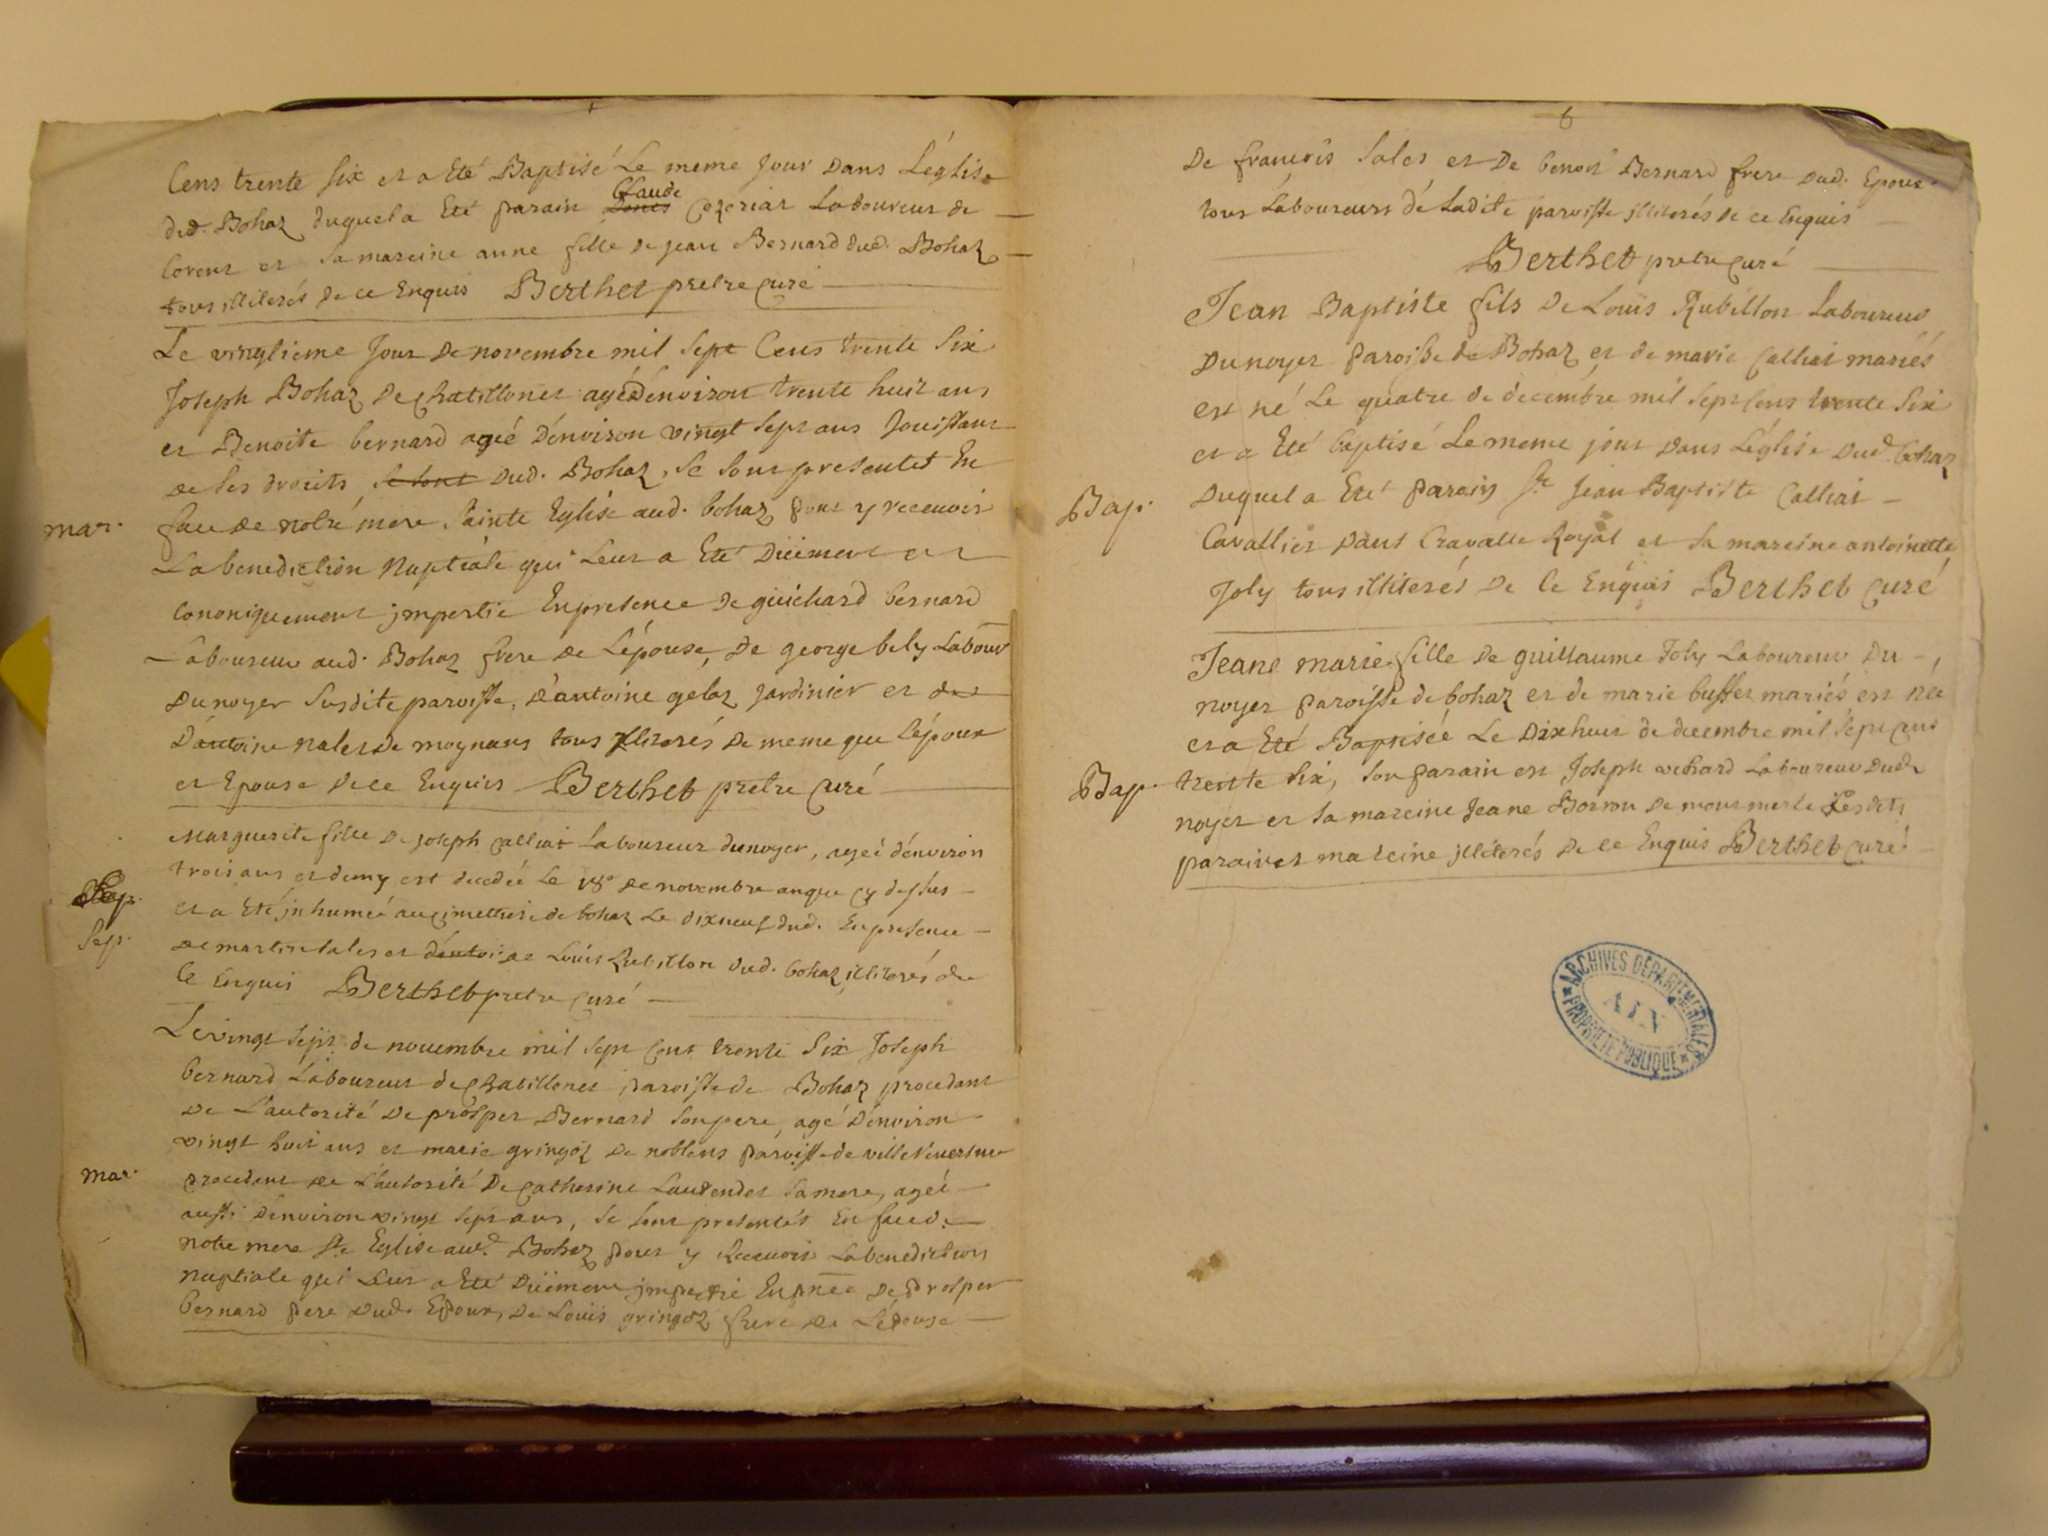 Cens trente six et a Eté Baptisé Le meme Jour Dans L'église
dud. Bohaz duquel a Eté parain Claude Cezeriat Laboureur de
Corent et sa mareine anne fille de jean Bernard dud. Bohaz
tous illiterés de ce Enquis Berthet pretre curé
Le vingtieme Jour De novembre mil sept Cens trente Six
Joseph Bohaz De chatillonet agé d'environ trente huit ans
et Benoite bernard ageé d'environ vingt sept ans Jouissant
de ses droits se sont Dud. Bohaz, se sont presentet En
mar.
face de notre mere Sainte Eglise aud. bohaz pour y recevoir
La benediction Nuptiale qui Leur a Eté Düement et
Cononiquement impartie En presence de guichard bernard
Laboureur aud. Bohaz frere de L'épouse, De george bely Labour
Du noyer susdite paroisse, d'antoine gelaz jardinier et des
D'antoine nalet de moynans tous illiterés De meme que L'époux
et Epouse De ce Enquis Berthet pretre Curé
Marguerite fille De joseph calliat Laboureur du noyer, ageé d'environ
trois ans et demy est decedeé Le 18e de novembre an que cy dessus
Bap.
Sep.
et a Eté inhumeé au cimettiere de bohaz Le dixneuf dud. En presence
de martin sales et d'antoi de Louis Rubillon dud. bohaz illiterés de
Ce Enquis Berthet pretre curé
Le vingt sept de novembre mil sept cent trente Six Joseph
bernard Laboureur de chatillonet paroisse de Bohaz procedant
De L'autorité De prosper Bernard son pere, agé D'environ
vingt huit ans et marie gringoz De noblens paroisse de villereversure
mar.
procedant de L'autorité De catherine sa mere, ageé
aussi D'environ vingt sept ans, se sont presentés En face de
notre mere Ste Eglise aud. Bohaz pour y Recevoir La benediction
nuptiale qui Leur a Eté Düement impartie En pnce De prosper
bernard pere Dud. Epoux, De Louis gringoz frere de L'épouse
6
De françois Sales et De benoit Bernard frere dud. Epoux
tous Laboureurs de Ladite paroisse illiterés de ce Enquis
Berthet pretre curé
Jean Baptiste fils De Louis Rubillon Laboureur
Du noyer paroisse de Bohaz et de marie Calliat mariés
est né Le quatre de decembre mil sept Cens trente Six
et a Eté baptisé Le meme jour dans L'église dud. bohaz
Bap.
Duquel a Eté parain Sr. Jean Baptiste Calliat
Cavallier Dans Cravatte Royal et sa mareine antoinette
Joly tous illiterés De Ce Enquis Berthet Curé
Jeane marie fille de guillaume Joly Laboureur Du
noyer paroisse de bohaz et de marie buffet mariés est née
et a Eté Baptiseé Le Dixhuit de decembre mil sept cens
Bap.
trente six, son parain est Joseph Laboureur Dud.
noyer et sa mareine Jeane De mourmerle Lesdits
parain et mareine illiterés De ce Enquis Berthet Curé
ARCHIVES DEPARTEMENTALES
AIN
PROPRIETE PUBLIQUE